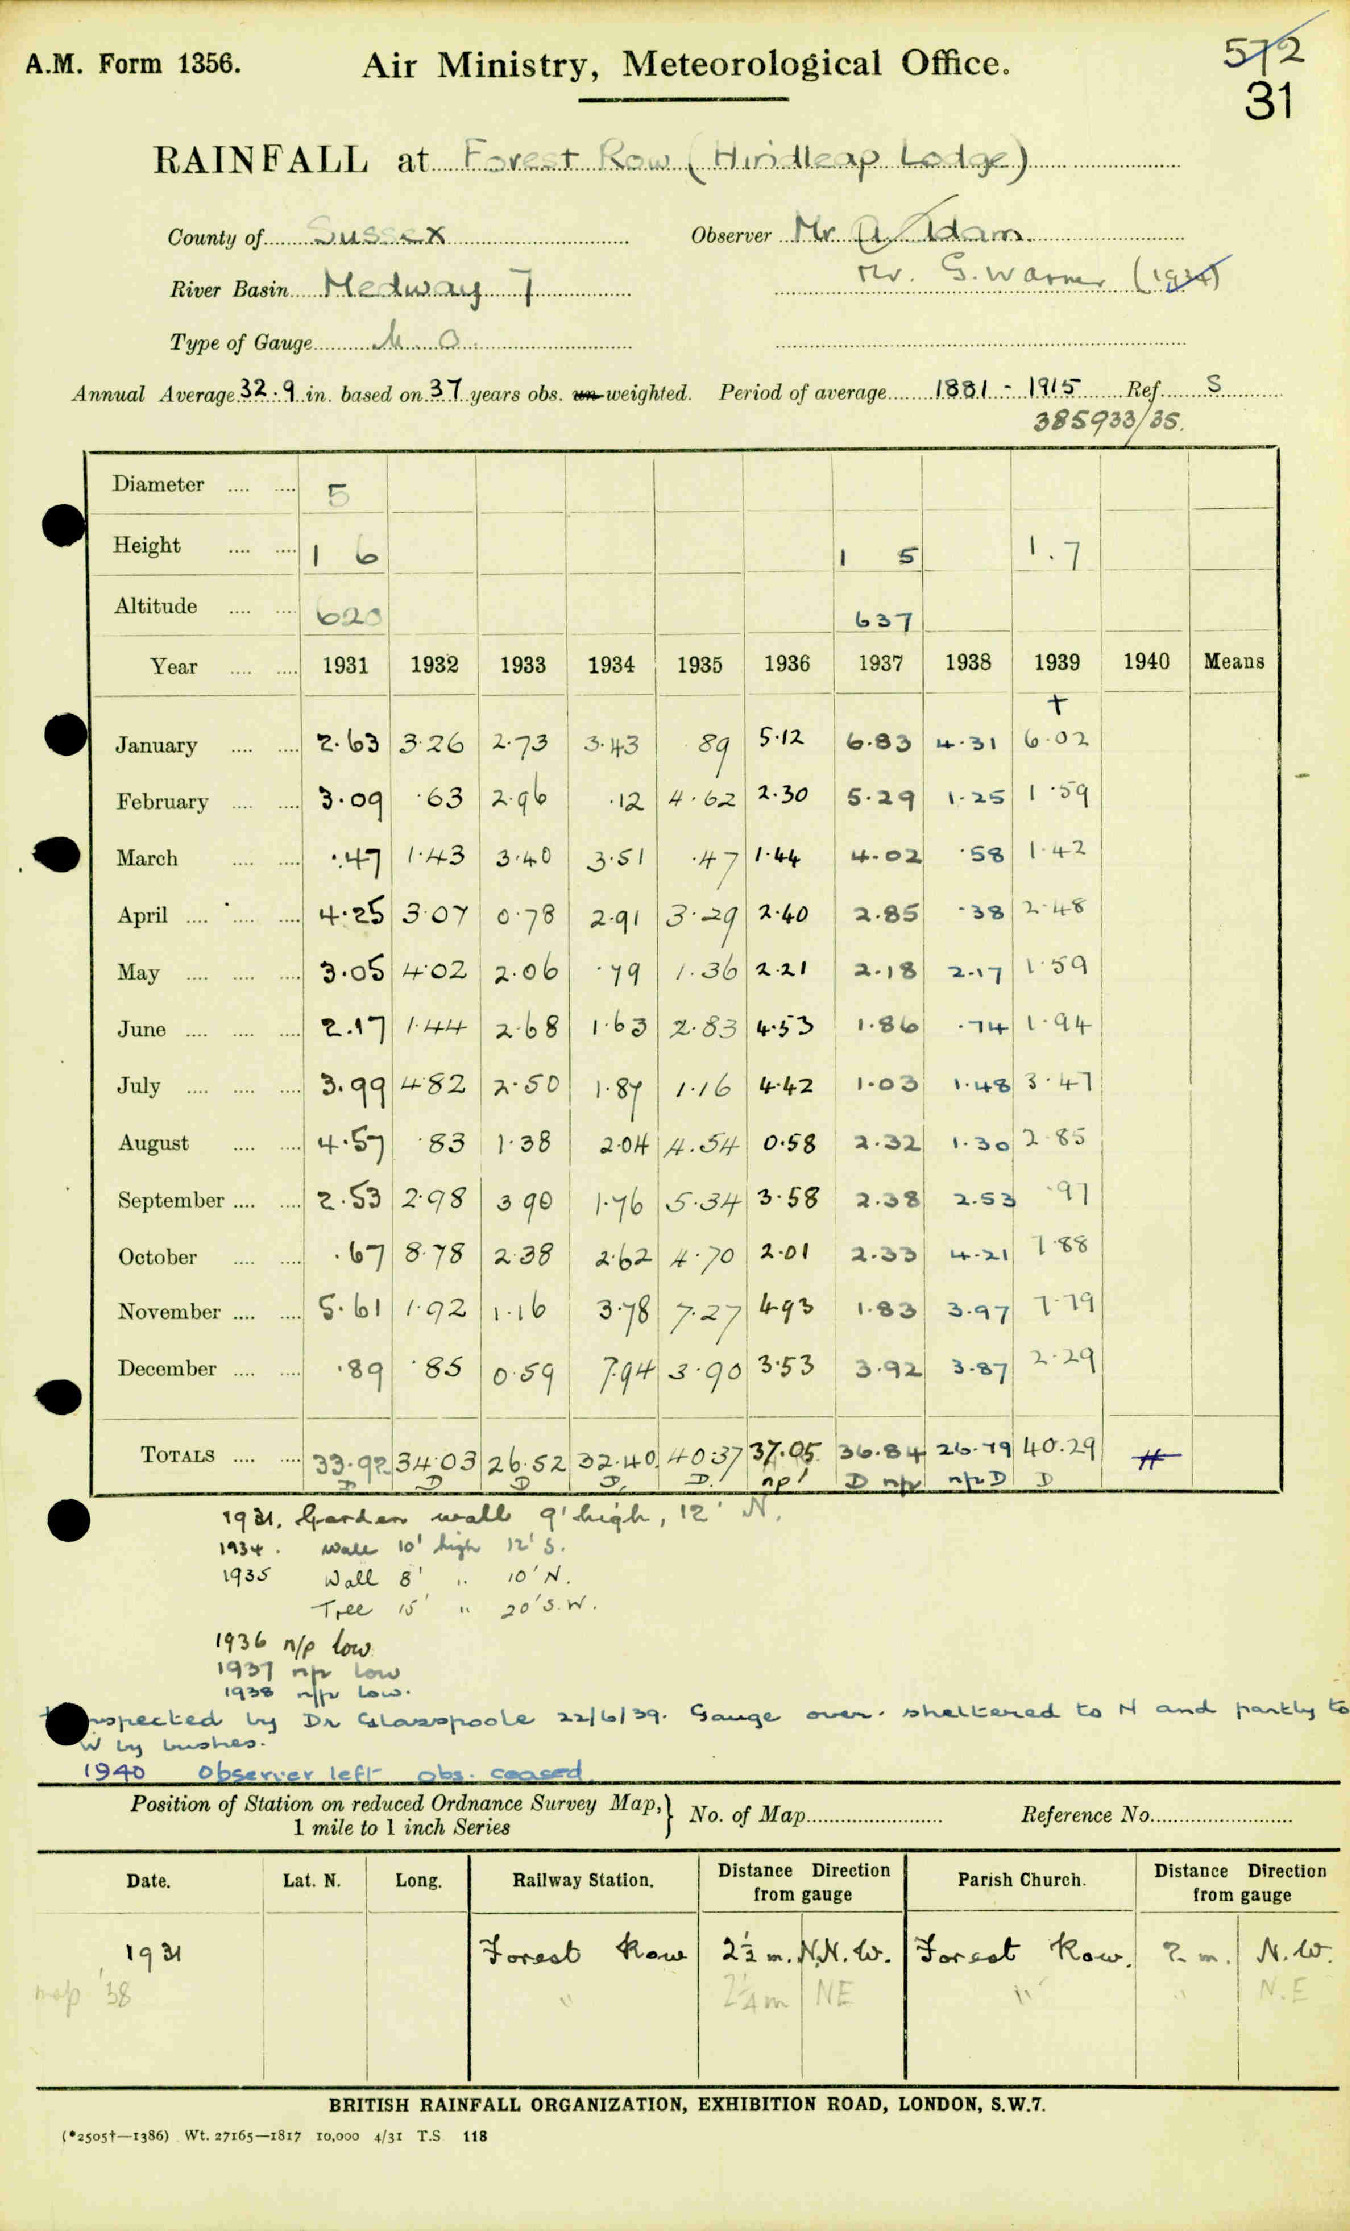 A.M. Form 1356. Air Ministry, Meteorological Office. 572
31
RAINFALL at Forest Row (Hindleap Lodge)
County of Sussex Observer Mr. A Adam
River Basin Medway 7 Mr. G. Warner (1934)
Type of Gauge M O.
Annual Average 32.9 in. based on 37 years obs. un weighted. Period of average 1881 - 1915 Ref. S
385933/35.
Diameter .... .... 5
Height .... .... 1 6 1 5 1.7
Altitude .... .... 620 637
Year .... .... 1931 1932 1933 1934 1935 1936 1937 1938 1939 1940 Means
+
January .... .... 2.63 3.26 2.73 3.43 89 5.12 6.83 4.31 6.02
February .... .... 3.09 .63 2.96 .12 4.62 2.30 5.29 1.25 1.59
March .... .... .47 1.43 3.40 3.51 .47 1.44 4.02 .58 1.42
April .... .... .... 4.25 3.07 0.78 2.91 3.29 2.40 2.85 .38 2.48
May .... .... .... 3.05 4.02 2.06 .79 1.36 2.21 2.18 2.17 1.59
June .... .... .... 2.17 1.44 2.68 1.63 2.83 4.53 1.86 .74 1.94
July .... .... .... 3.99 4.82 2.50 1.87 1.16 4.42 1.03 1.48 3.47
August .... .... 4.57 .83 1.38 2.04 4.54 0.58 2.32 1.30 2.85
September .... .... 2.53 2.98 3 90 1.76 5.34 3.58 2.38 2.53 .97
October .... .... .67 8.78 2.38 2.62 4.70 2.01 2.33 4.21 7.88
November .... .... 5.61 1.92 1.16 3.78 7.27 4.93 1.83 3.97 7.79
December .... .... .89 .85 0.59 7.94 3.90 3.53 3.92 3.87 2.29
TOTALS .... .... 33.92 34.03 26.52 32.40 40.37 37.05 36.84 26.79 40.29
D D D D. D. np! D np np D D
1931. Garden wall 9' high, 12' N.
1934. Wall 10' high 12' S.
1935 Wall 8' " 10' N.
Tree 15' " 20' S.W.
1936 n/p low
1937 n/p low
1938 n/p low.
nspected by Dr Glasspoole 22/6/39. Gauge over. sheltered to N and partly to
W by bushes.
1940 Observer left obs. ceased
Position of Station on reduced Ordnance Survey Map, } No. of Map Reference No.
1 mile to 1 inch Series
Date. Lat. N. Long. Railway Station. Distance Direction from gauge Parish Church. Distance Direction from gauge
1931 Forest Row 2½ m. N.N.W. Forest Row. 2 m. N.W.
map '38 " 2¼ m NE " " N.E
BRITISH RAINFALL ORGANIZATION, EXHIBITION ROAD, LONDON, S.W.7.
(*2505†—1386) Wt. 27165—1817 10,000 4/31 T.S. 118